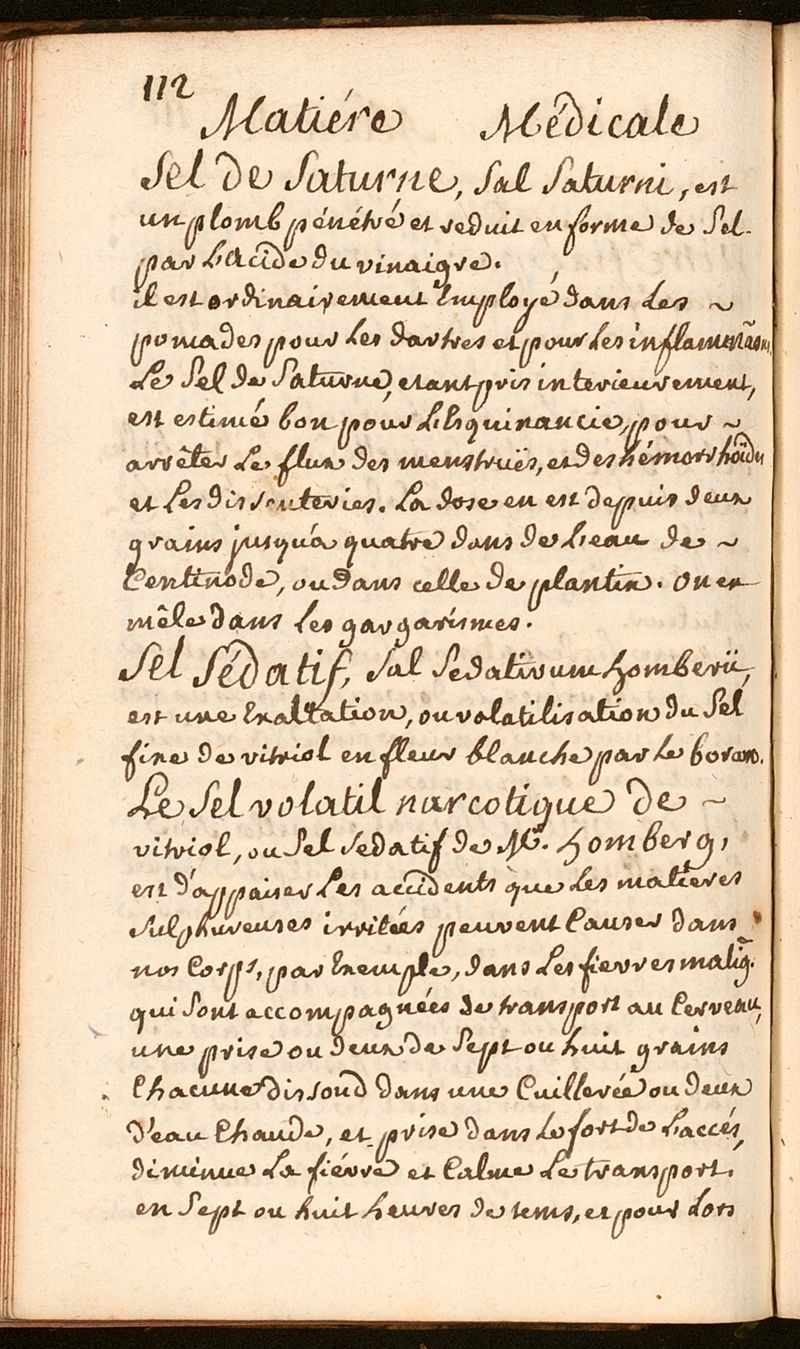 112
Matiére Médicale
Sel de Saturne, Sal Saturni, est
un plomb pénétré et reduit en forme de Sel
par L'acide du vinaigre.
il est ordinairement Employé dans Les ~
pomades pour Les dartres et pour Les inflamma͠ons.
Le Sel de Saturne, etant pris interieurement,
est estimé bon pour L'Esquinancie, pour ~
arrêter Le flux des menstruës, et des hémorrhoïdes
et Les dissenteries. La dose en est depuis deux
grains jusqu'a quatre dans de L'eau de ~
Centinode, ou dans celle de plantin. On en
mêle dans Les gargarismes.
Sel Sédatif, Sal Sedativum homberii,
est une Exaltation, ou volatilisation du Sel
fixe de vitriol en fleur blanche par Le borax.
Le Sel volatil narcotique de ~
vitriol, ou Sel Sedatif de Mr. homberg,
est d'appaiser Les accidents que Les matieres
Sulphureuses irritées peuvent Causer dans
nos Corps, par Exemple, dans Les fievres malig̃.
qui Sont accompagnées de transport au Cerveau,
une prise ou deux de Sept ou huit grains
Chacune dissoud dans une Cuillerée ou deux
d'eau Chaude, et prise dans Le fort de L'accés,
diminue La fiévre et Calme Le transport,
en Sept ou huit heures de tems, et pour Lors